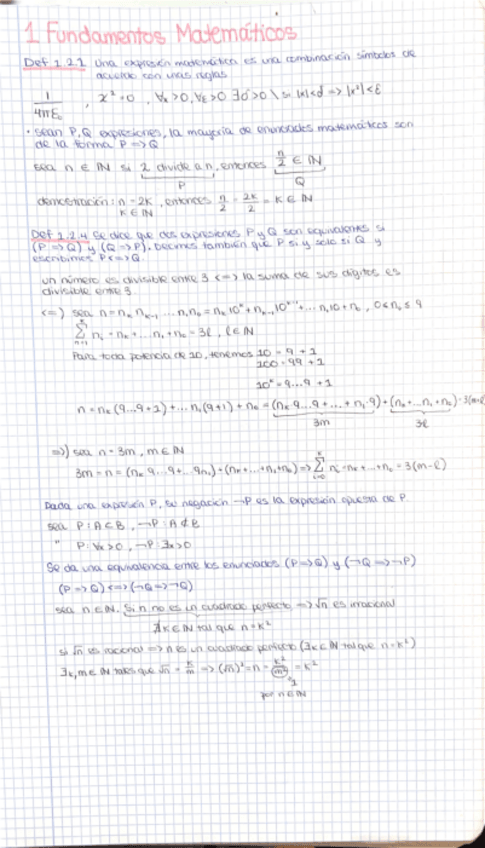 1 Fundamentos Matemáticos
Def 1.2.1 Una expresión matemática es una combinación símbolos de
acuerdo con unas reglas
1/4πε₀ , x²=0 , ∀x>0, ∀ε>0 ∃δ>0 \ si |x|<d => |x²|<ε
· sean P,Q expresiones, la mayoría de enunciados matemáticos son
de la forma P => Q
sea n ∈ ℕ si 2 divide a n, entonces n/2 ∈ ℕ
P Q
demostración: n = 2k, entonces n/2 = 2k/2 = k ∈ ℕ
k ∈ ℕ
Def 1.2.4 Se dice que dos expresiones P y Q son equivalentes si
(P => Q) y (Q => P). Decimos también que P si y solo si Q y
escribimos P <=> Q.
un número es divisible entre 3 <=> la suma de sus dígitos es
divisible entre 3.
<=) sea n = nₖ nₖ₋₁ ... n₁n₀ = nₖ10ᵏ + nₖ₋₁10ᵏ⁻¹ + ... n₁10 + n₀, 0≤nᵢ≤9
∑ nᵢ = nₖ + ... n₁ + n₀ = 3l, l ∈ ℕ
Para toda potencia de 10, tenemos 10 = 9 + 1
100 = 99 + 1
10ᵏ = 9...9 + 1
n = nₖ(9...9+1) + ... n₁(9+1) + n₀ = (nₖ 9...9 + ... + n₁·9) + (nₖ+...n₁+n₀) = 3(m+l)
3m 3l
=>) sea n = 3m, m ∈ ℕ
3m = n = (nₖ 9...9 + ... 9n₁) + (nₖ + ... + n₁ + n₀) => ∑ nᵢ = nₖ + ... + n₀ = 3(m-l)
Dada una expresión P, su negación ¬P es la expresión opuesta de P.
sea P: A⊂B, ¬P: A⊄B
" P: ∀x>0, ¬P: ∃x>0
Se da una equivalencia entre los enunciados (P=>Q) y (¬Q=>¬P)
(P => Q) <=> (¬Q => ¬Q)
sea n ∈ ℕ. Si n no es un cuadrado perfecto => √n es irracional
∄k ∈ ℕ tal que n = k²
si √n es racional => n es un cuadrado perfecto (∃k ∈ ℕ tal que n = k²)
∃k,m ∈ ℕ tales que √n = k/m => (√n)² = n = k²/m² = k²
1
por n ∈ ℕ